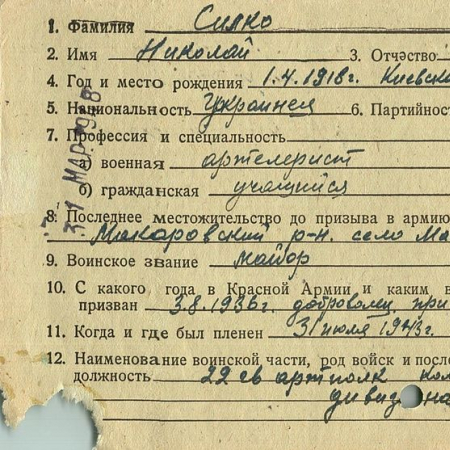 1. Фамилия Силко
2. Имя Николай 3. Отчество
4. Год и место рождения 1.4.1918г. Киевска
5. Национальность Украинец 6. Партийност
7. Профессия и специальность
а) военная артелерист
б) гражданская учащийся
8. Последнее местожительство до призыва в армию
Макаровский р-н. село Ма
9. Воинское звание майор
10. С какого года в Красной Армии и каким в
призван 3.8.1936г. доброволец при
11. Когда и где был пленен 31 июля 1943г.
12. Наименование воинской части, род войск и посл
должность 22 гв артполк ком
дивизиона
31 МАР 1948